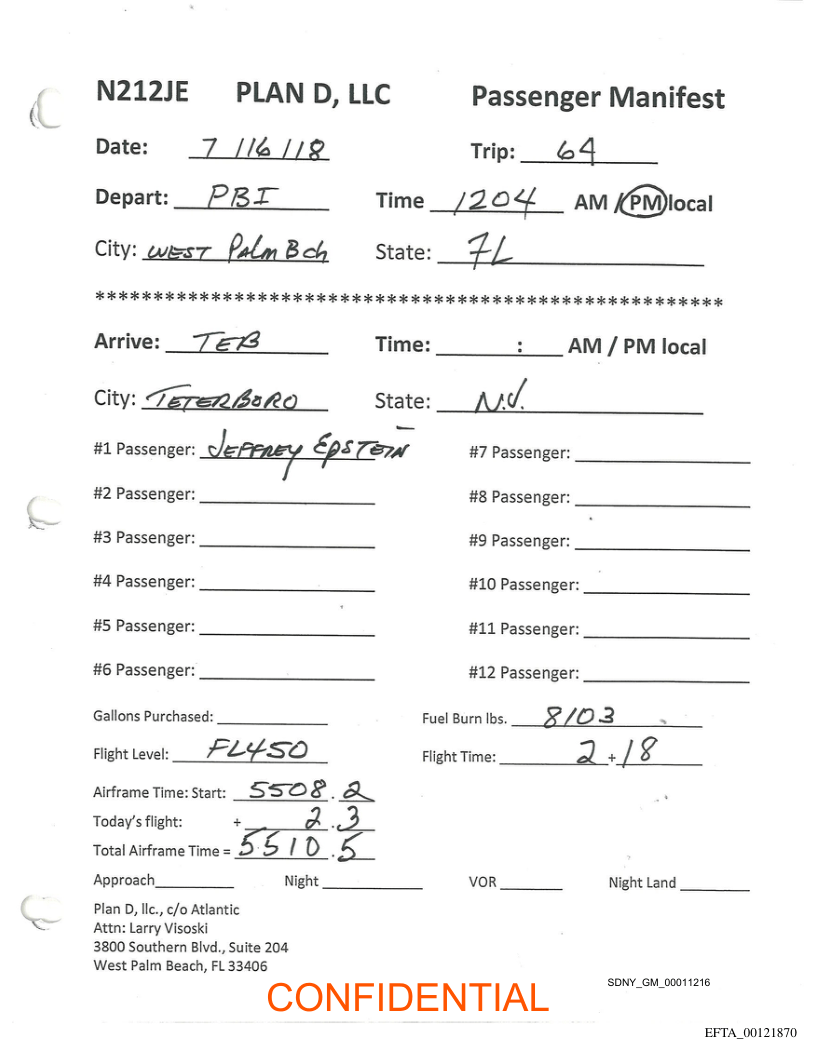 N212JE PLAN D, LLC Passenger Manifest
Date: 7/16/18 Trip: 64
Depart: PBI Time 1204 AM / PM local
City: WEST Palm Bch State: FL
******************************************************
Arrive: TEB Time: : AM / PM local
City: TETERBORO State: N.J.
#1 Passenger: JEFFREY EPSTEIN #7 Passenger:
#2 Passenger: #8 Passenger:
#3 Passenger: #9 Passenger:
#4 Passenger: #10 Passenger:
#5 Passenger: #11 Passenger:
#6 Passenger: #12 Passenger:
Gallons Purchased: Fuel Burn lbs. 8103
Flight Level: FL450 Flight Time: 2 + 18
Airframe Time: Start: 5508.2
Today's flight: + 2.3
Total Airframe Time = 5510.5
Approach Night VOR Night Land
Plan D, llc., c/o Atlantic
Attn: Larry Visoski
3800 Southern Blvd., Suite 204
West Palm Beach, FL 33406
SDNY_GM_00011216
CONFIDENTIAL
EFTA_00121870